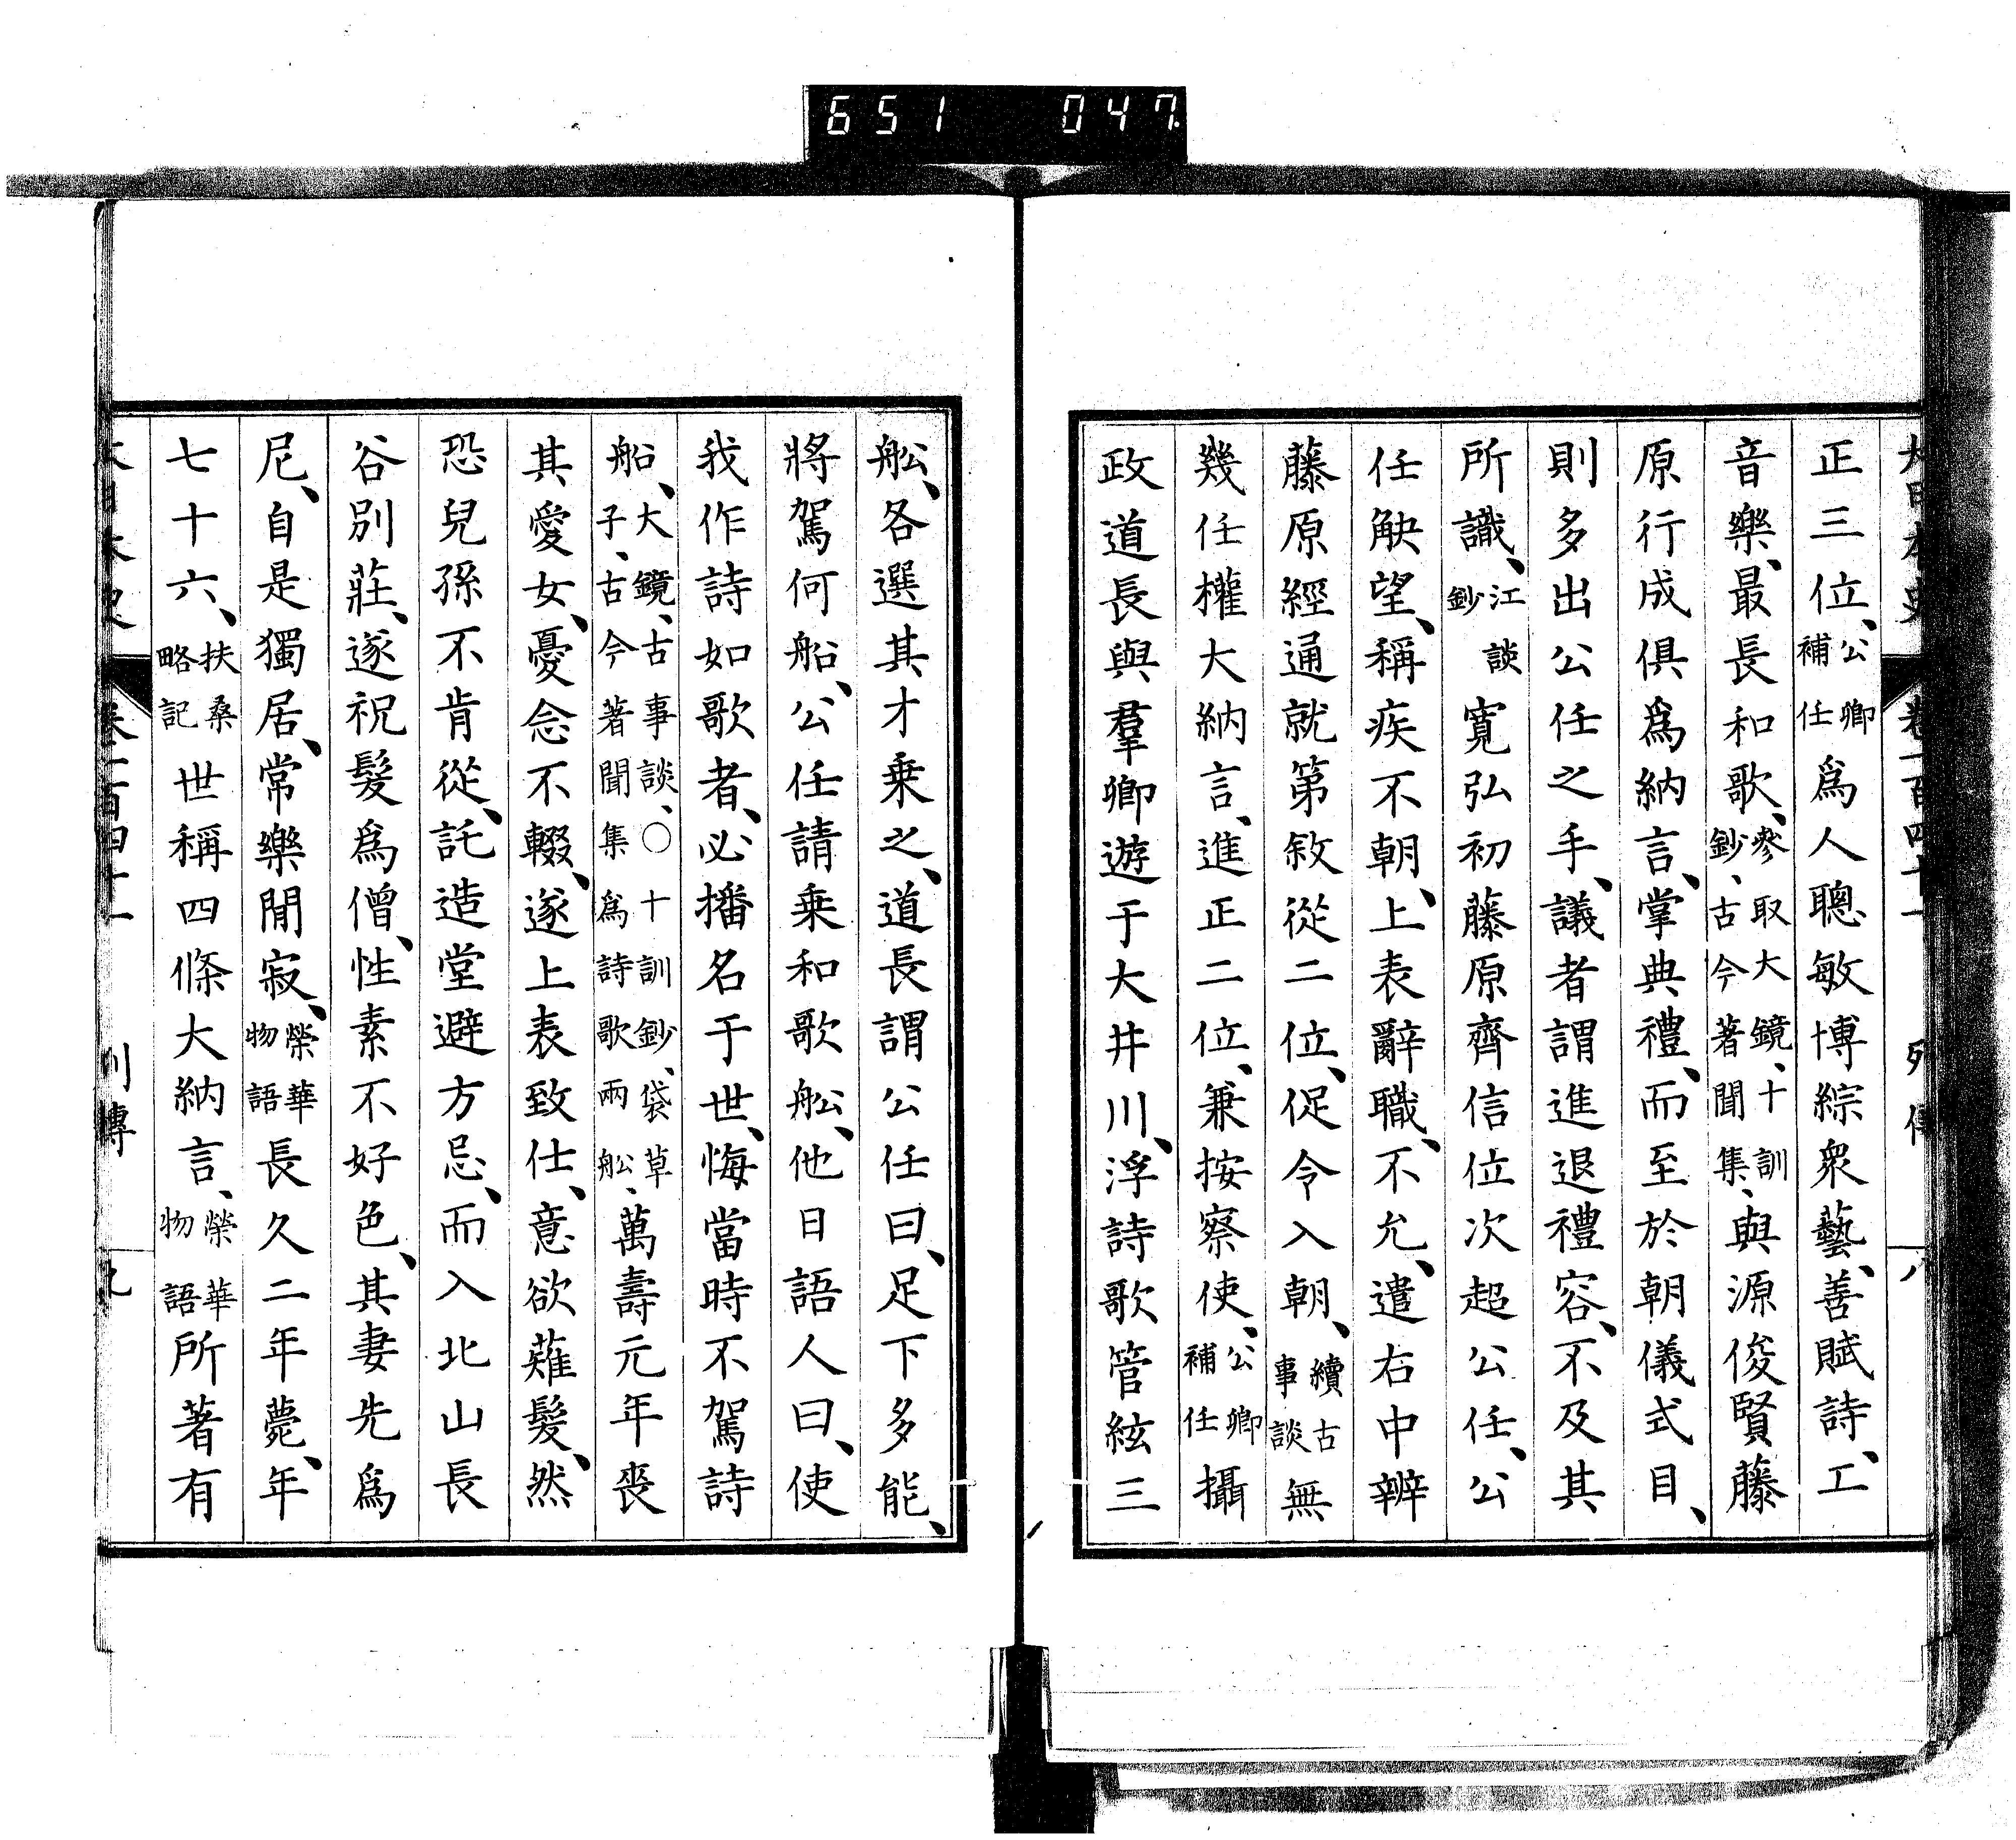 651 047
大日本史 卷一百四十一 列傳 八
正三位、公卿補任爲人聰敏博綜衆藝、善賦詩、工
音樂、最長和歌、參取大鏡、十訓鈔、古今著聞集、與源俊賢藤
原行成俱爲納言、掌典禮、而至於朝儀式目、
則多出公任之手、議者謂進退禮容、不及其
所識、江談鈔寬弘初藤原齊信位次超公任、公
任觖望、稱疾不朝、上表辭職、不允、遣右中辨
藤原經通就第敘從二位、促令入朝、續古事談無
幾任權大納言、進正二位、兼按察使、公卿補任攝
政道長與羣卿遊于大井川、浮詩歌管絃三
舩、各選其才乗之、道長謂公任曰、足下多能、
將駕何船、公任請乗和歌舩、他日語人曰、使
我作詩如歌者、必播名于世、悔當時不駕詩
船、大鏡、古事談、○十訓鈔、袋草子、古今著聞集爲詩歌兩舩、萬壽元年喪
其愛女、憂念不輟、遂上表致仕、意欲薙髮、然
恐兒孫不肯從、託造堂避方忌、而入北山長
谷別莊、遂祝髮爲僧、性素不好色、其妻先爲
尼、自是獨居、常樂閒寂、榮華物語長久二年薨、年
七十六、扶桑略記世稱四條大納言、榮華物語所著有
大日本史 卷一百四十一 列傳 九